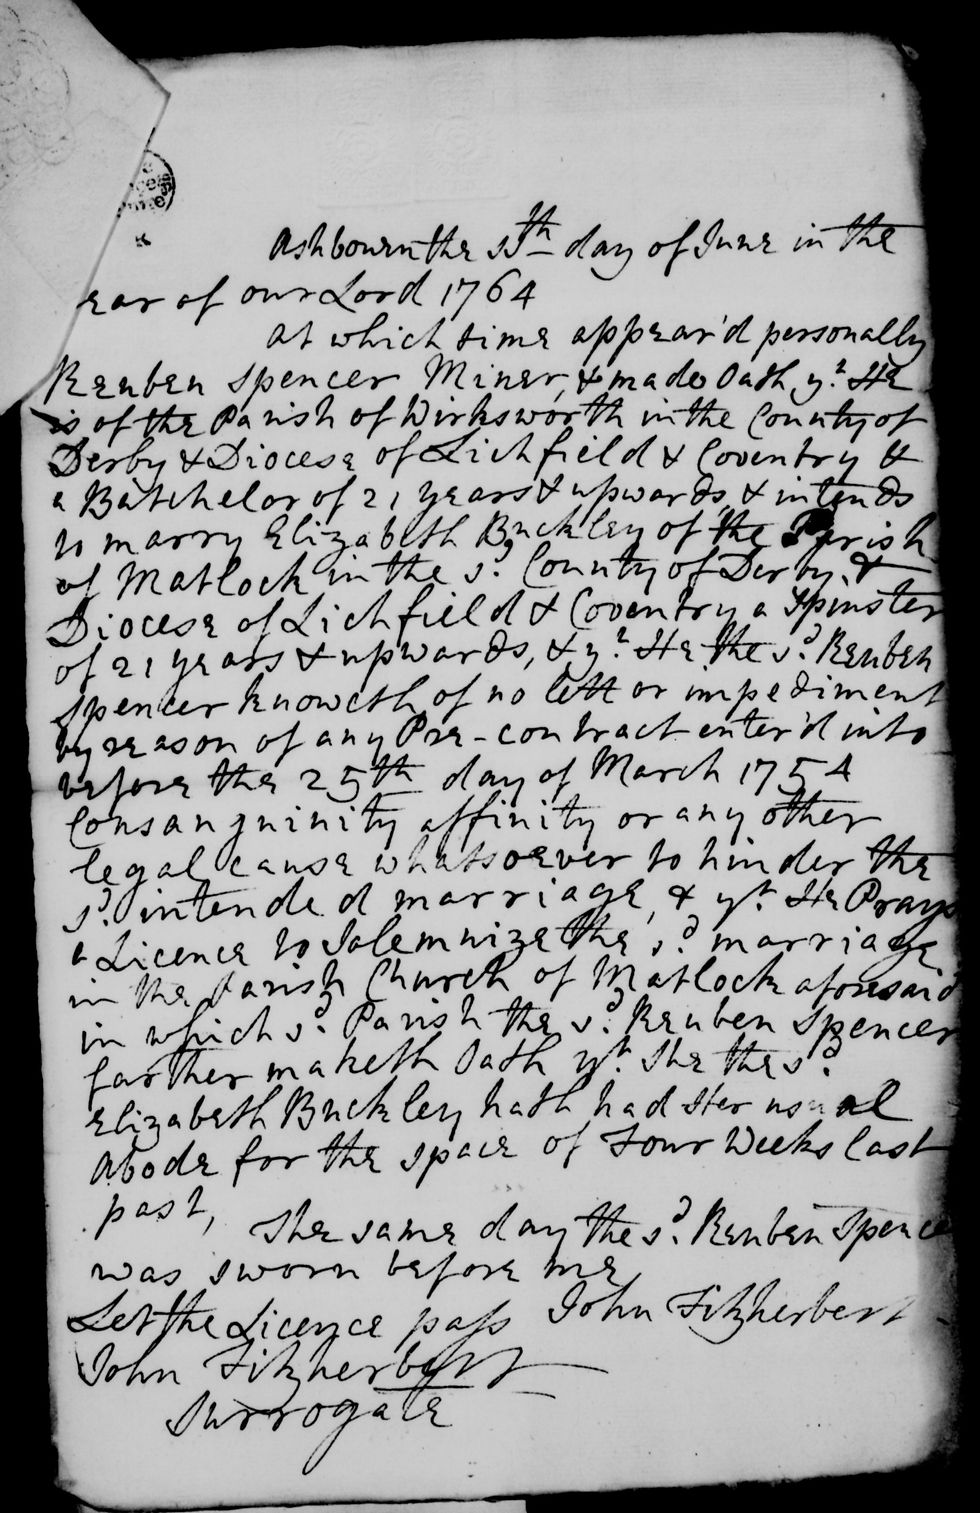 Ashbourn the 11th day of June in the
ear of our Lord 1764
At which time appear'd personally
Reuben Spencer Miner, & made Oath yt. He
is of the Parish of Wirksworth in the County of
Derby & Diocese of Lichfield & Coventry &
a Batchelor of 21 years & upwards, & intends
to marry Elizabeth Buckley of the Parish
of Matlock in the sd. County of Derby, &
Diocese of Lichfield & Coventry a Spinster
of 21 years & upwards, & yt. He the sd. Reuben
Spencer knoweth of no lett or impediment
by reason of any Pre-contract enter'd into
before the 25th day of March 1754
Consanguinity affinity or any other
legal cause whatsoever to hinder the
sd. intended marriage, & yt. He Prays
a Licence to Solemnize the sd. marriage
in the Parish Church of Matlock aforesaid
in which sd. Parish the sd. Reuben Spencer
farther maketh Oath yt. She the sd.
Elizabeth Buckley hath had Her usual
Abode for the space of Four Weeks last
past,
The same day the sd. Reuben Spence
was sworn before me
Let the Licence pass John Fitzherbert
John Fitzherbert
Surrogate